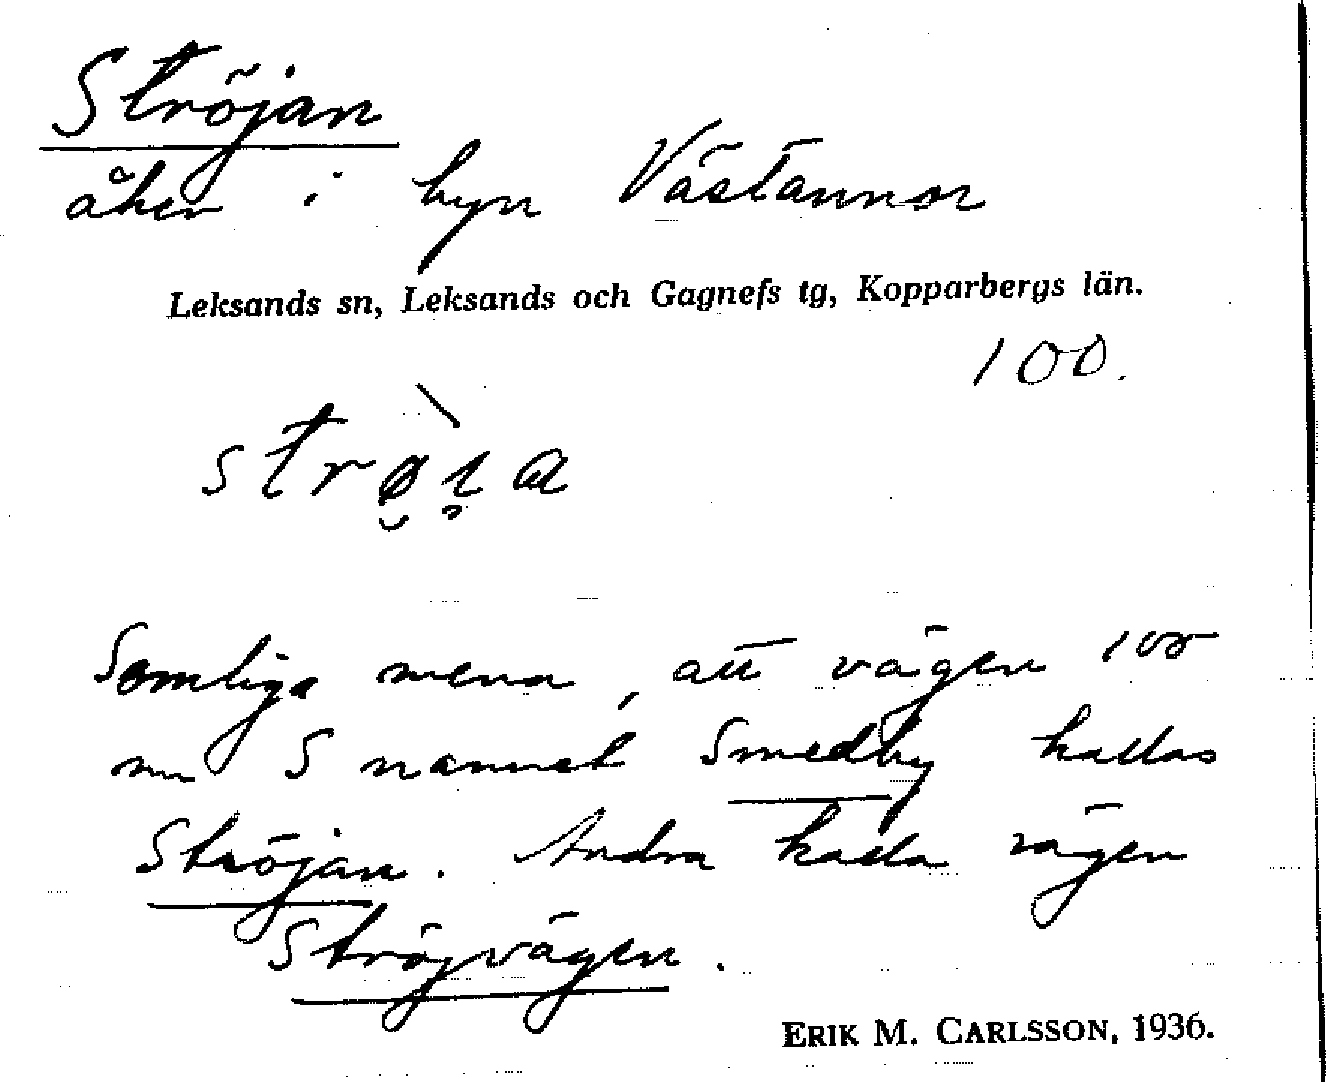 Ströjan
åker i byn Västannor
Leksands sn, Leksands och Gagnefs tg, Kopparbergs län.
100.
Somliga mena, att vägen 100
m S namnet Smedby kallas
Ströjan. Andra kalla vägen
Ströjvägen.
ERIK M. CARLSSON, 1936.